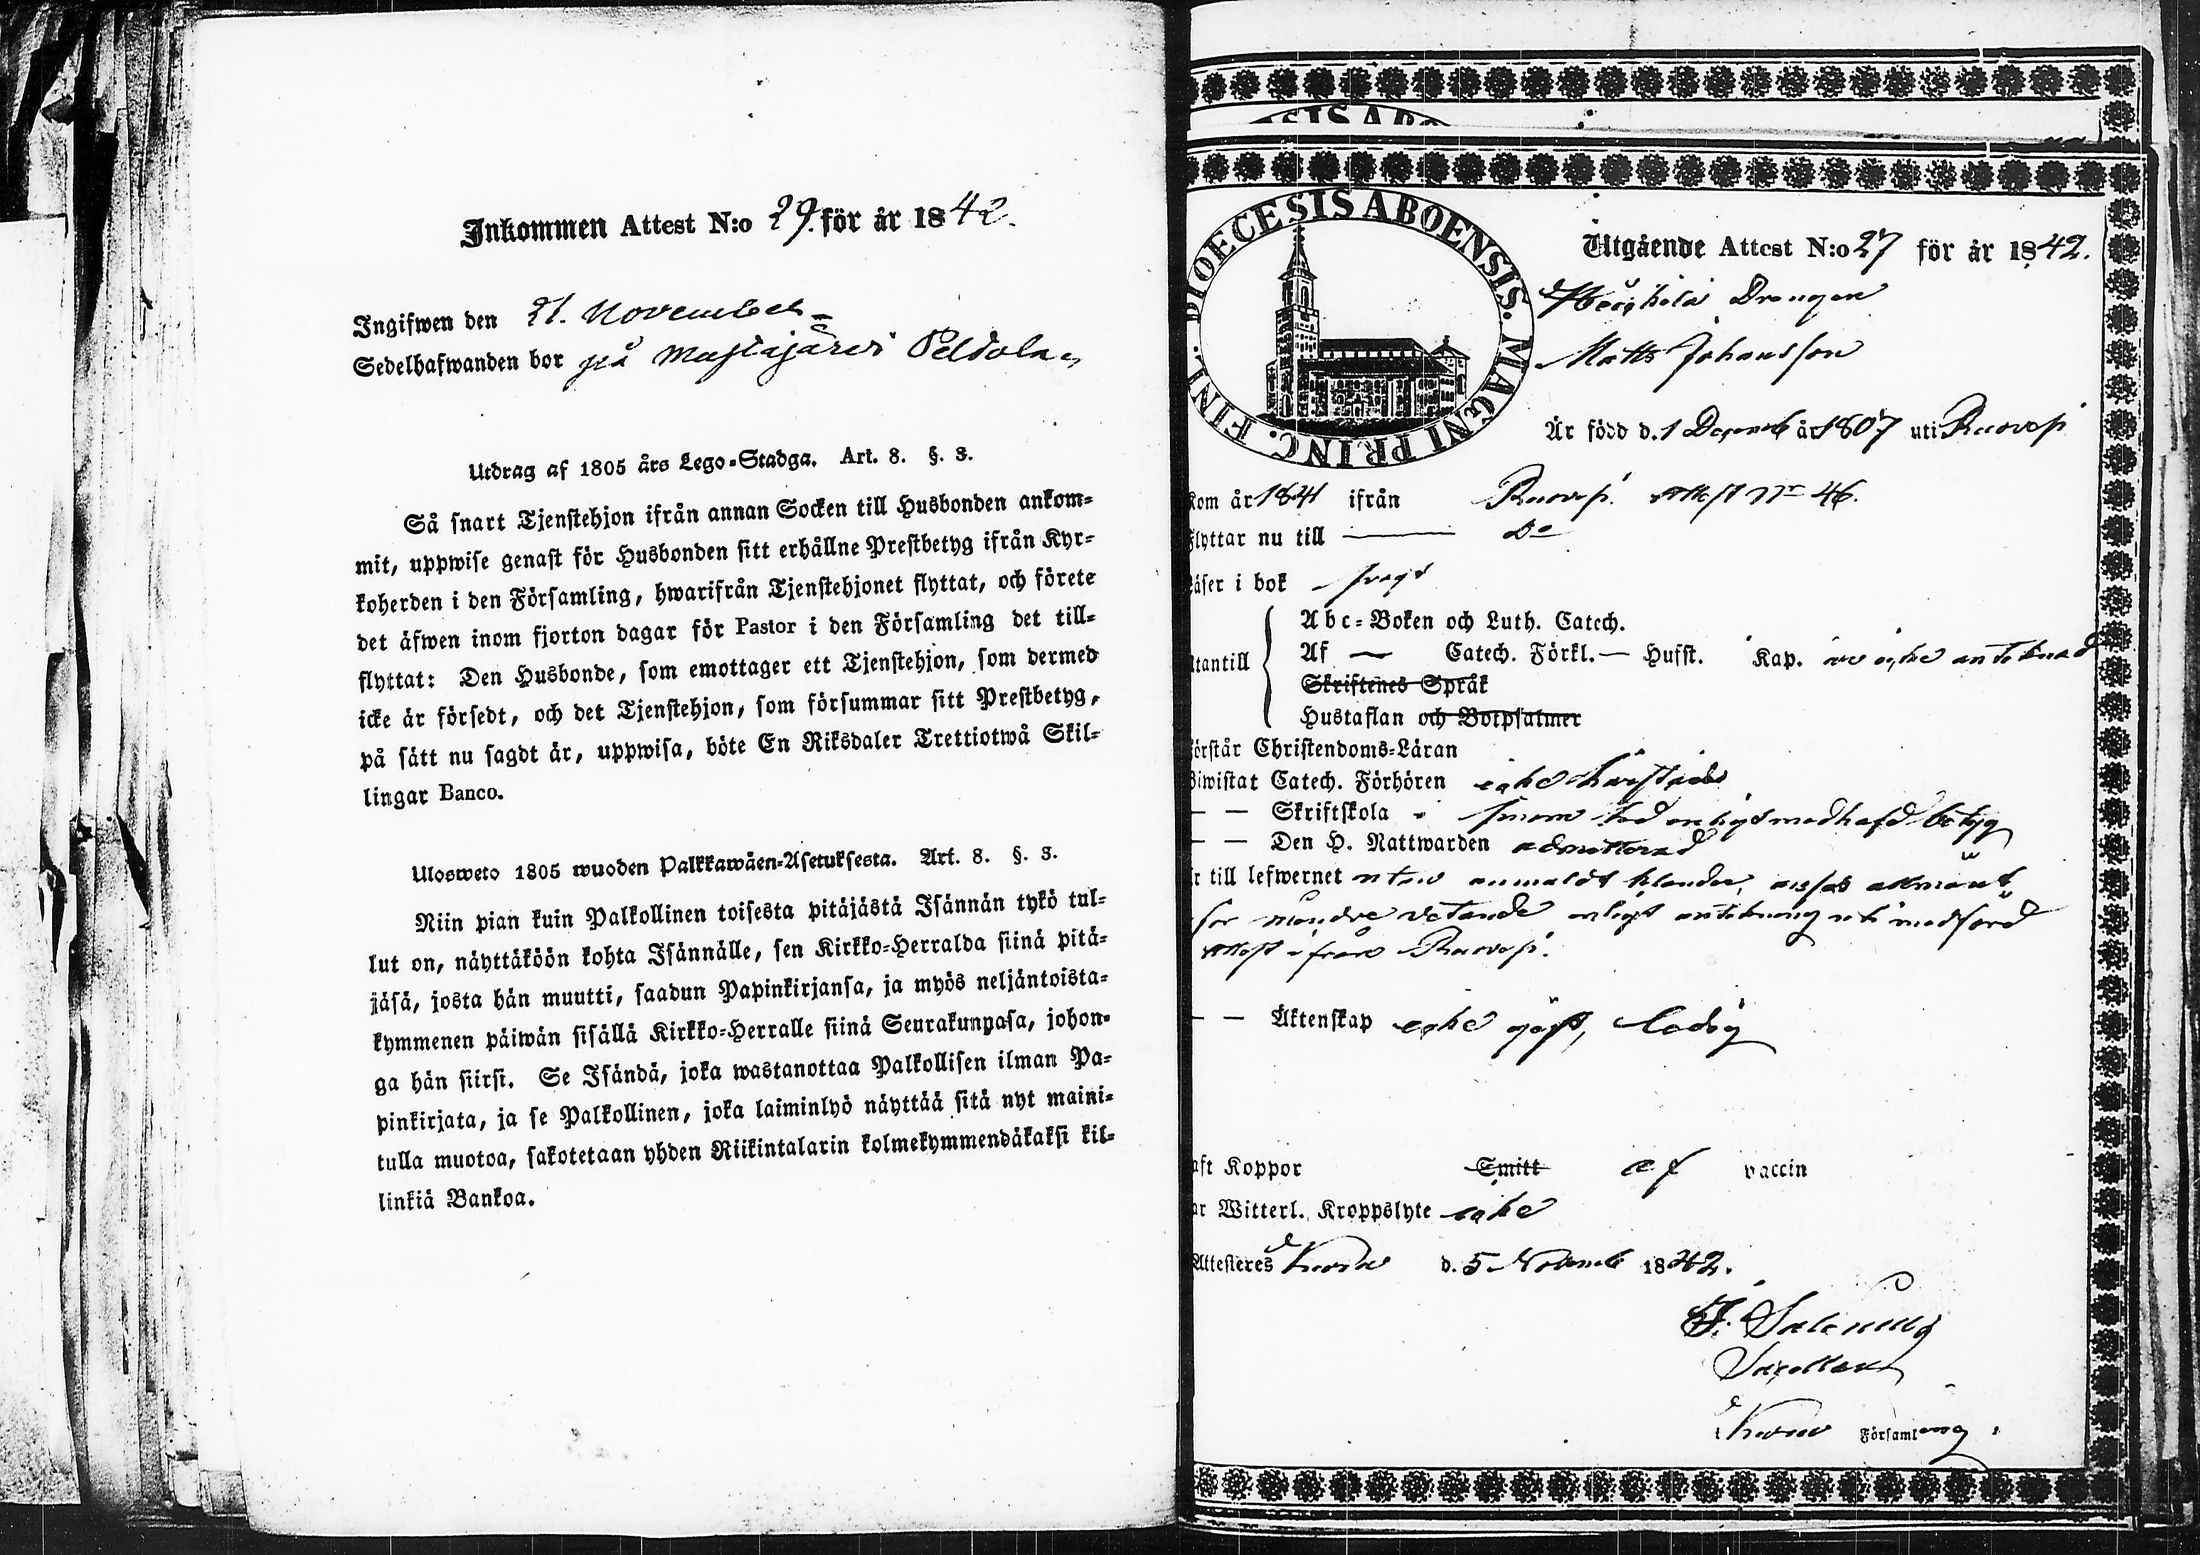 Inkommen Attest N:o 29. för år 1842.
Ingifwen den 21. November
Sedelhafwanden bor på Mustajärvi Peldola
Utdrag af 1805 års Lego-Stadga. Art. 8. §. 3.
Så snart Tjenstehjon ifrån annan Socken till Husbonden ankom-
mit, uppwise genast för Husbonden sitt erhållne Prestbetyg ifrån Kyr-
koherden i den Församling, hwarifrån Tjenstehjonet flyttat, och förete
det äfwen inom fjorton dagar för Pastor i den Församling det till-
flyttat: Den Husbonde, som emottager ett Tjenstehjon, som dermed
icke är försedt, och det Tjenstehjon, som försummar sitt Prestbetyg,
på sätt nu sagdt är, uppwisa, böte En Riksdaler Trettiotwå Skil-
lingar Banco.
Ulosweto 1805 wuoden Palkkawäen-Asetuksesta. Art. 8. §. 3.
Niin pian kuin Palkollinen toisesta pitäjästä Isännän tykö tul-
lut on, näyttäköön kohta Isännälle, sen Kirkko-Herralda siinä pitä-
jäsä, josta hän muutti, saadun Papinkirjansa, ja myös neljäntoista-
kymmenen päiwän sisällä Kirkko-Herralle siinä Seurakunnasa, johon-
ga hän siirsi. Se Isändä, joka wastanottaa Palkollisen ilman Pa-
pinkirjata, ja se Palkollinen, joka laiminlyö näyttää sitä nyt maini-
tulla muotoa, sakotetaan yhden Riikintalarin kolmekymmendäkaksi kil-
linkiä Bankoa.
SIS ABO
DIOECESIS ABOENSIS. MAGNI PRINC. FINL.
Utgående Attest N:o 27 för år 1842.
Drengen
Matts Johansson
Är född d. 1 Decemb år 1807 uti Ruovesi
kom år 1841 ifrån Ruovesi. Attest No 46.
flyttar nu till — Do
läser i bok svagt
Abc-Boken och Luth. Catech.
utantill Af — Catech. Förkl. — Husst. Kap. är icke antecknad
Skriftenes Språk
Hustaflan och Botpsalmer
förstår Christendoms-Läran
Biwistat Catech. Förhören icke härstädes
— — Skriftskola enligt medhafd betyg
— — Den H. Nattwarden admitterad
r till lefwernet utan anmäldt klander, anses allmänt
för mindre vetande enligt anteckning uti medförd
attest ifrån Ruovesi.
— — Äktenskap icke gift, ledig
aft Koppor Smitt af vaccin
ar Witterl. Kroppslyte icke
Attesteres Kuru d. 5 Novemb 1842.
Sacellan
Kuru Församling.